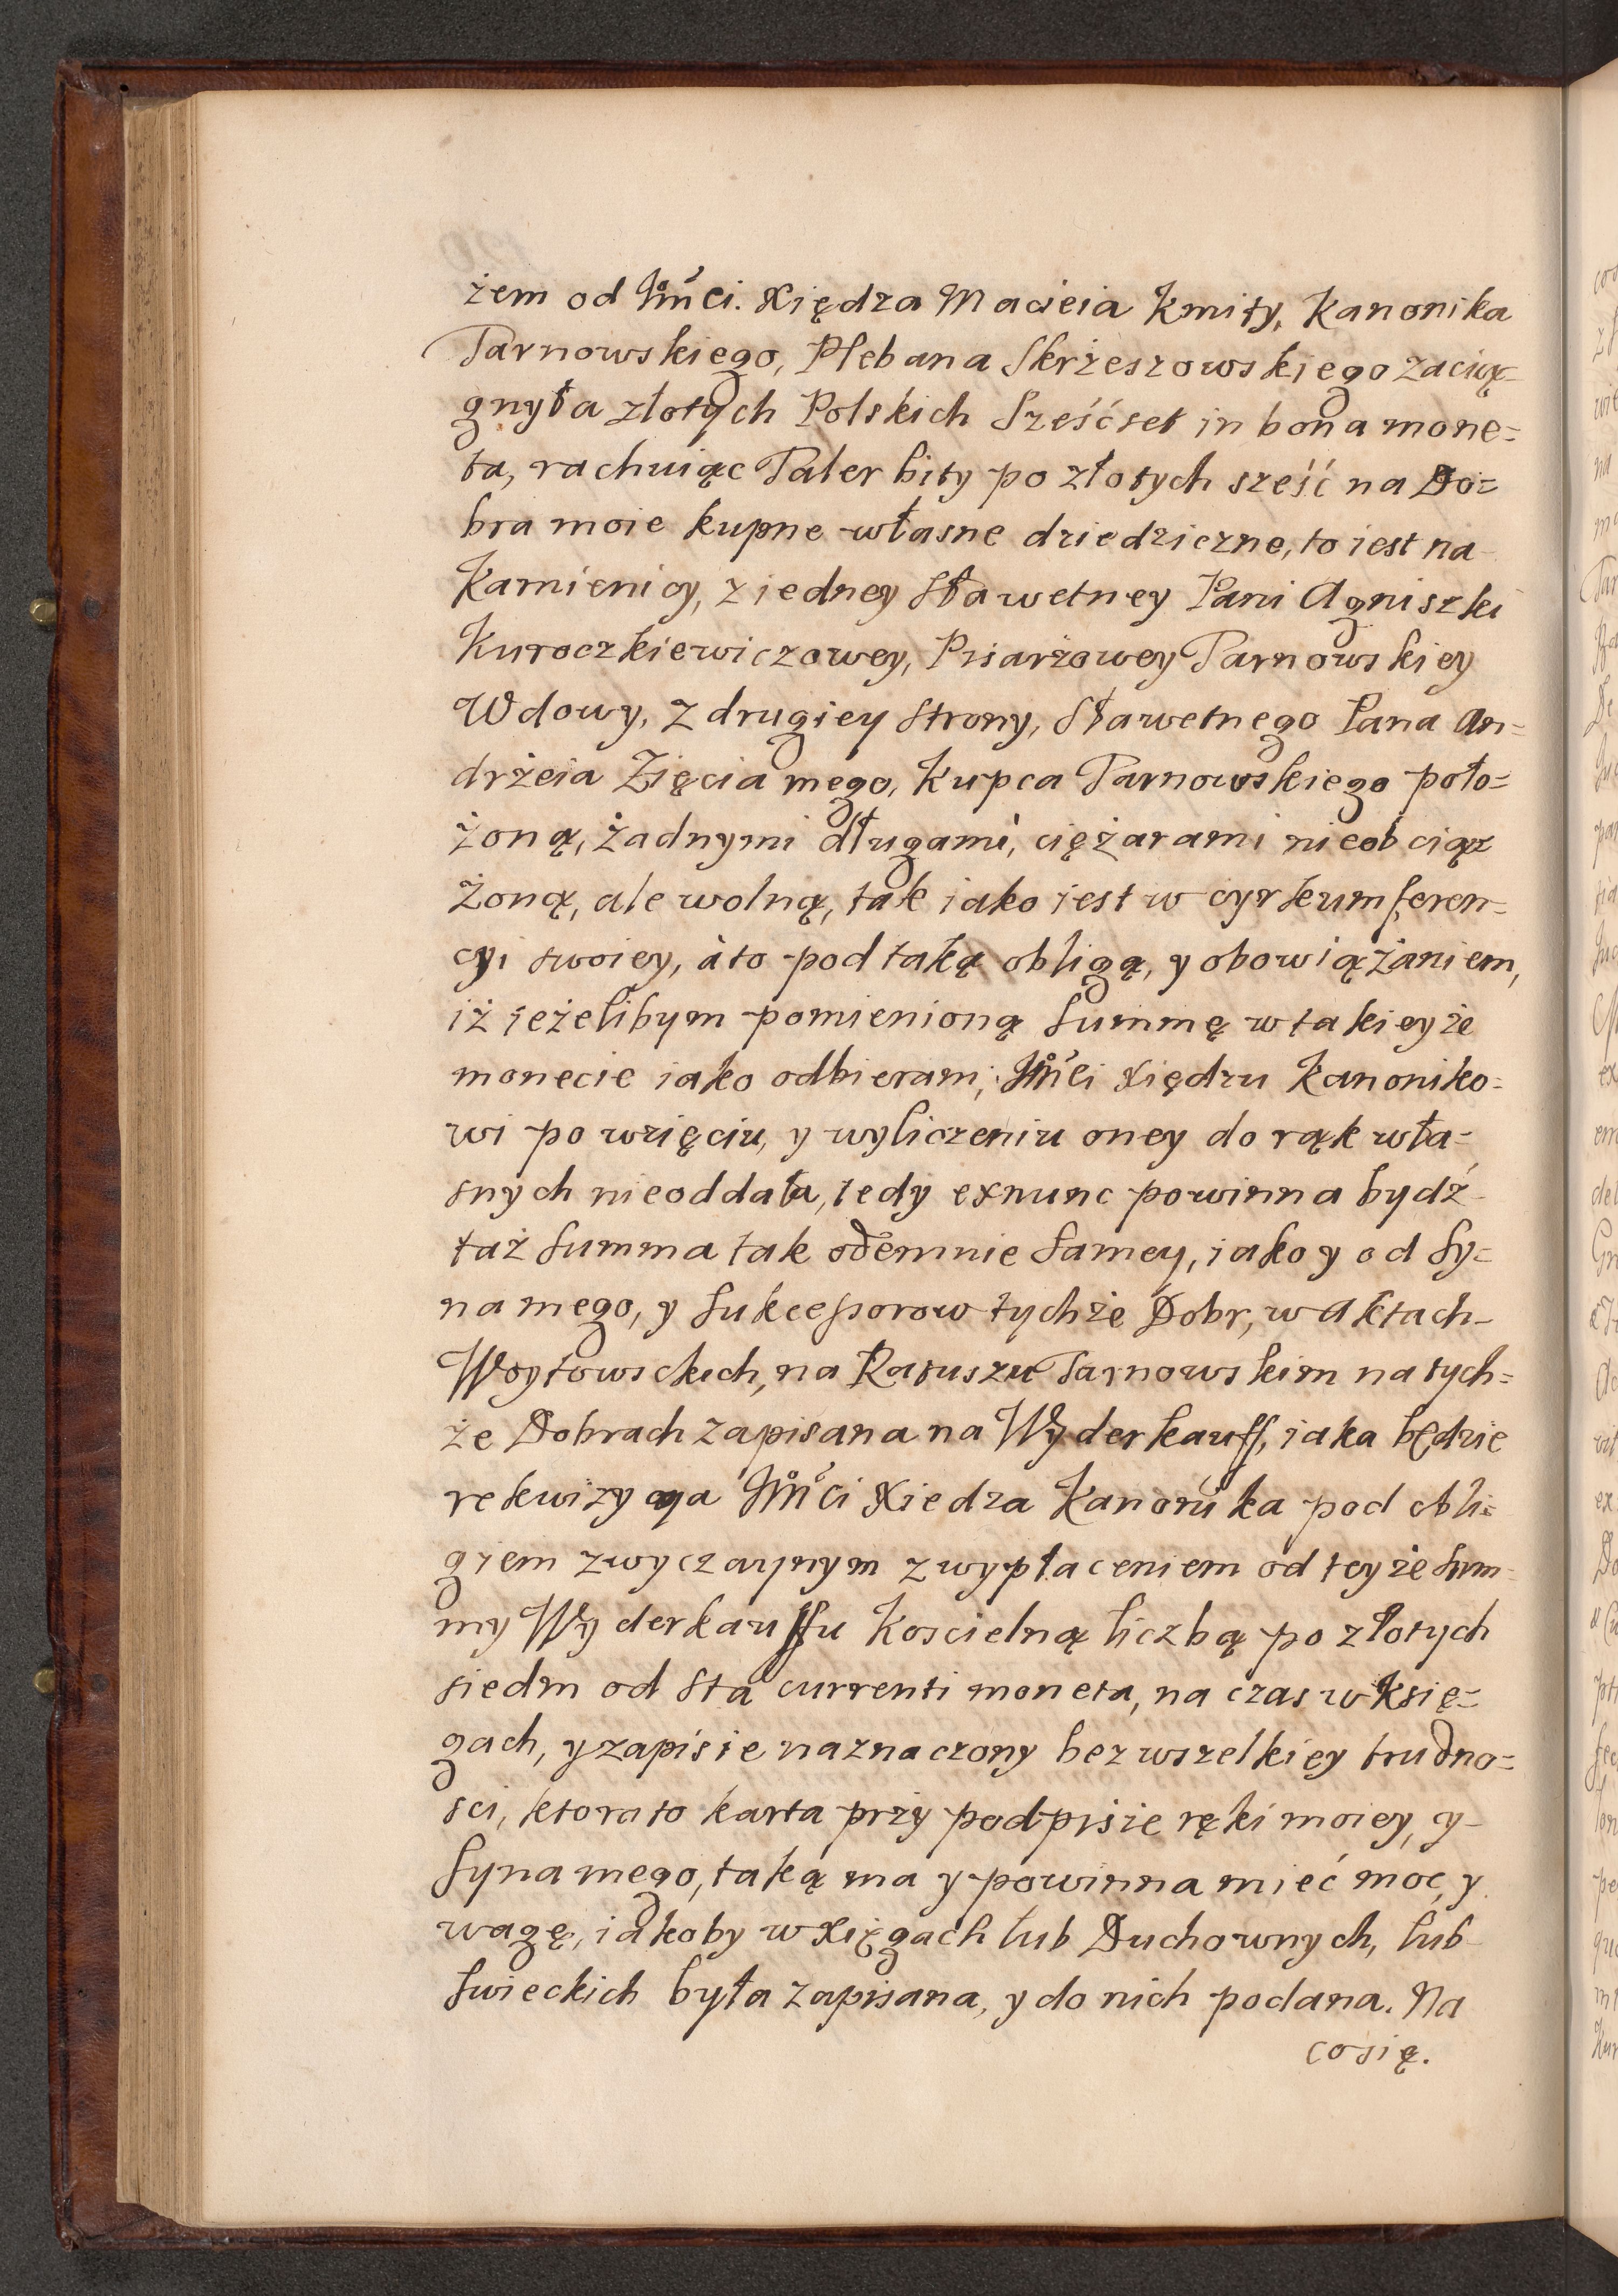 żem od Jm̃ci. Xiędza Macieia Kmity, Kanonika
Tarnowskiego, Plebana Skrżeszowskiego zacią-
gnyła złotych Polskich Sześćset in bona mone=
ta, rachuiąc Taler bity po złotych sześć na Do=
bra moie kupne własne dziedziczne, to iest na
Kamienicy, z iedney Sławetney Pani Agniszki
Kuroczkiewiczowey, Pisarżowey Tarnowskiey
Wdowy, z drugiey Strony, Sławetnego Pana An=
drżeia Zięcia mego, Kupca Tarnowskiego poło=
żoną, żadnymi długami, ciężarami nieobciąż
żoną, ale wolną, tak iako iest w cyrkumferen=
cyi swoiey, à to pod taką obligą, y obowiążaniem,
iż ieżelibym pomienioną Summę w takieyże
monecie iako odbieram, Jm̃ci Xiędzu Kanoniko=
wi po wzięciu, y wyliczeniu oney do rąk wła=
snych nieoddała, tedy exnunc powinna bydź
taż Summa tak odemnie Samey, iako y od Sy=
na mego, y Sukcessorow tychże Dobr, w Aktach
Woytowsckich, na Ratuszu Tarnowskim na tych=
że Dobrach zapisana na Wyderkauff, iaka będzie
rekwizycya Jm̃ci Xiedza Kanonika pod obli=
giem zwyczaynym z wypłaceniem od teyże Sum=
my Wyderkauffu Koscielną liczbą po złotych
siedm od Sta currenti moneta, na czas w Księ=
gach, y zapisie naznaczony bez wszelkiey trudno=
sci, ktora to karta przy podpisie ręki moiey, y
Syna mego, taką ma y powinna mieć moc, y
wagę, iakoby w Xięgach lub Duchownych, lub
Swieckich była zapisana, y do nich podana. Na
co się.